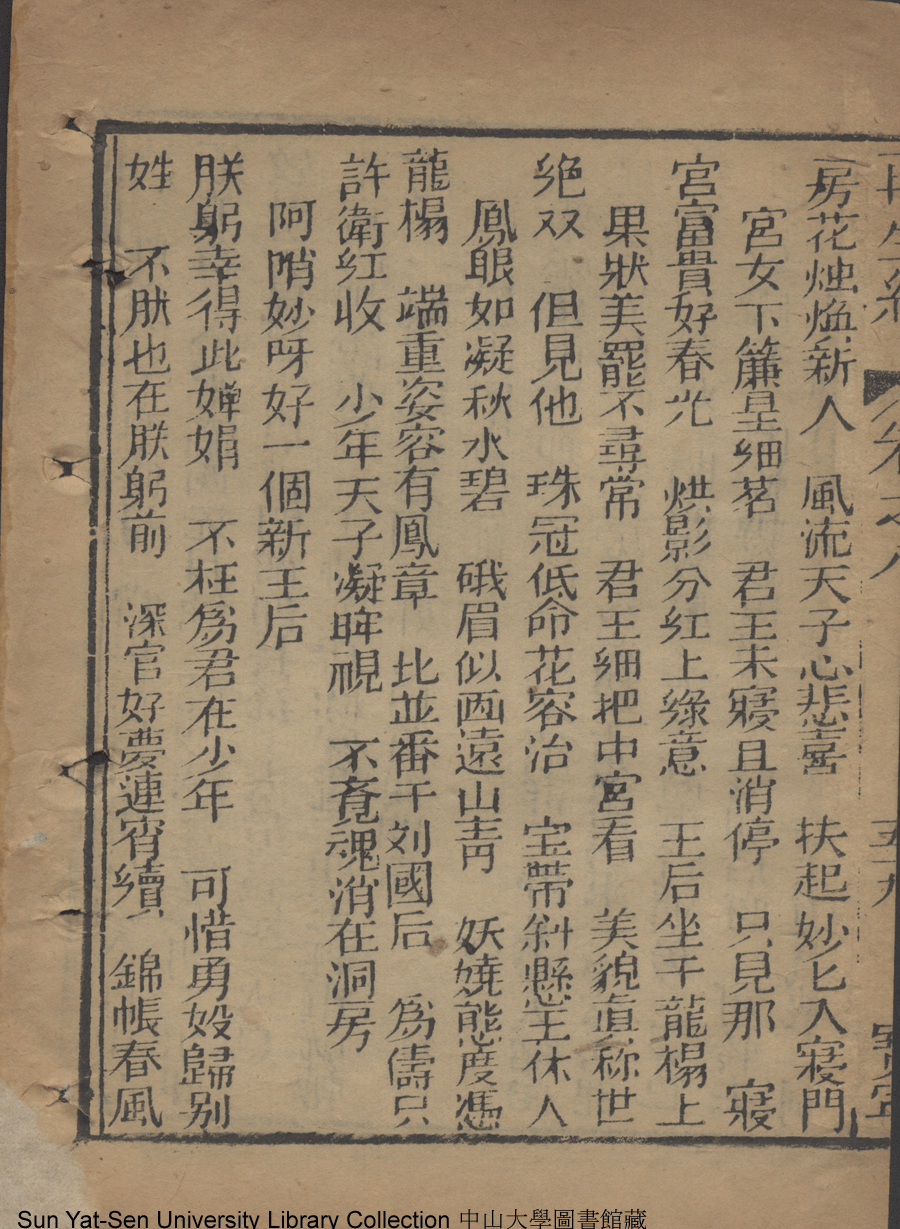 再生緣 卷之八 五十九 寶寧
房花烛煥新人 風流天子心悲喜 扶起妙匕入寢門
宮女下簾呈细茗 君王未寢且消停 只見那 寢
宮富貴好春光 烘影分红上綠意 王后坐于龍榻上
果狀美罷不尋常 君王细把中宮看 美貌真称世
绝双 但見他 珠冠低命花容冶 宝带斜懸玉体人
鳳眼如凝秋水碧 硪眉似画遠山青 妖嬈態度凴
龍榻 端重姿容有鳳章 比並番干刘國后 為儔只
許衛红收 少年天子凝眸視 不竟魂消在洞房
阿哨妙呀好一個新王后
朕躬幸得此嬋娟 不枉為君在少年 可惜勇妏歸别
姓 不肰也在朕躬前 深官好夢連宵續 錦帳春風
Sun Yat-Sen University Library Collection 中山大學圖書館藏